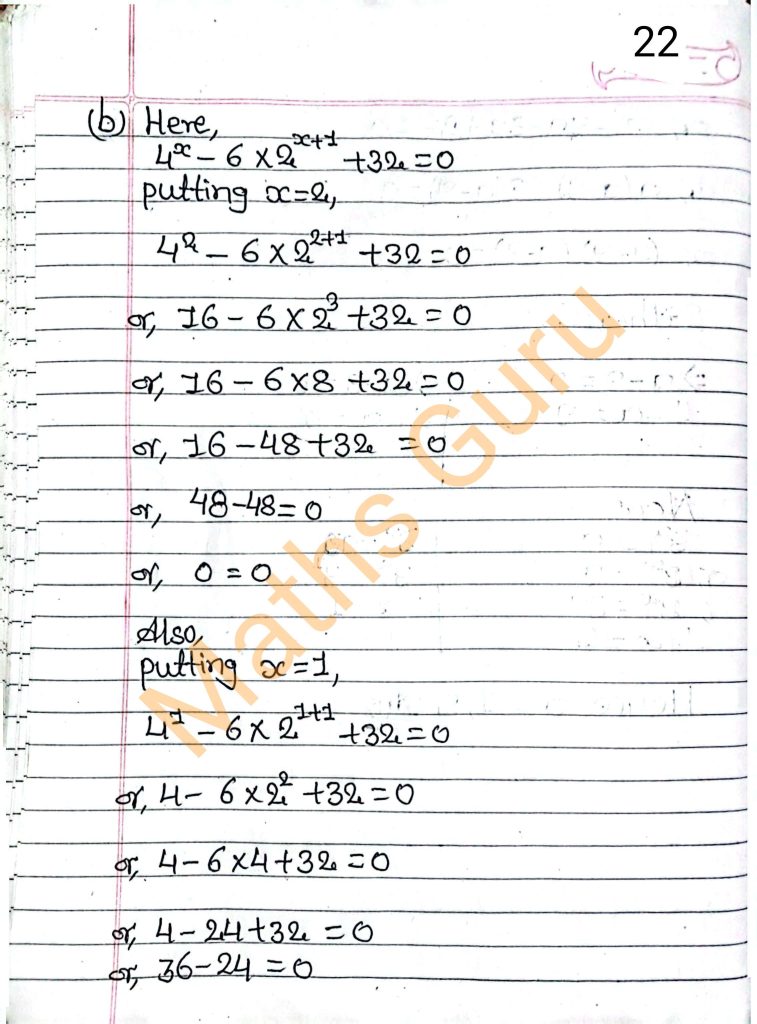 22
(b) Here,
4^x - 6 × 2^{x+1} + 32 = 0
putting x=2,
4^2 - 6 × 2^{2+1} + 32 = 0
or, 16 - 6 × 2^3 + 32 = 0
or, 16 - 6 × 8 + 32 = 0
or, 16 - 48 + 32 = 0
or, 48 - 48 = 0
or, 0 = 0
Also,
putting x=1,
4^1 - 6 × 2^{1+1} + 32 = 0
or, 4 - 6 × 2^2 + 32 = 0
or, 4 - 6 × 4 + 32 = 0
or, 4 - 24 + 32 = 0
or, 36 - 24 = 0
Maths Guru